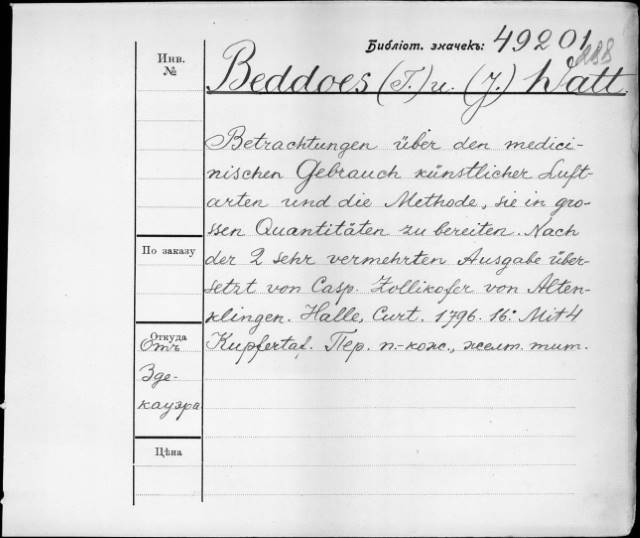 Библіот. значекъ: 49201
288
Инв.
№
Beddoes (T.) u. (J.) Watt.
Betrachtungen über den medici-
nischen Gebrauch künstlicher Luft-
arten und die Methode, sie in gro-
ssen Quantitäten zu bereiten. Nach
По заказу
der 2 sehr vermehrten Ausgabe über-
setzt von Casp. Zollikofer von Alten-
klingen. Halle, Curt. 1796. 16: Mit 4
Kupfertaf. Пер. п.-кож., желт. тит.
Откуда
Отъ
Зде-
кауэра
Цѣна